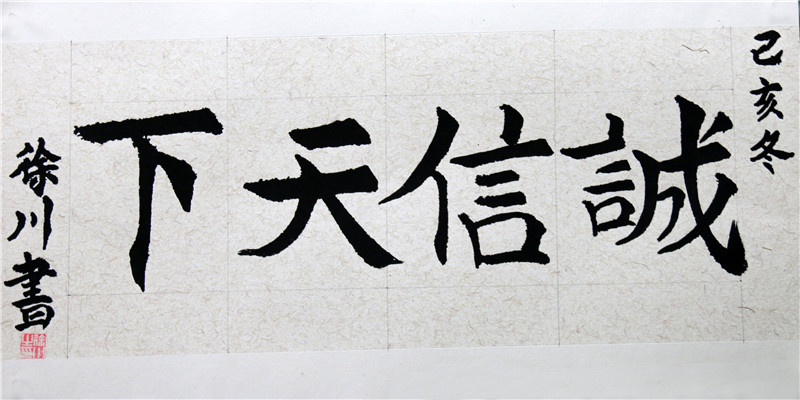 己亥冬
誠信天下
徐川書